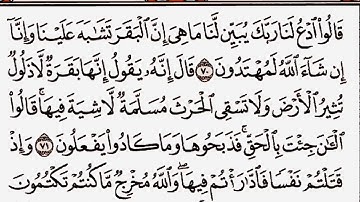 قَالُوا۟ ٱدْعُ لَنَا رَبَّكَ يُبَيِّن لَّنَا مَا هِىَ إِنَّ ٱلْبَقَرَ تَشَٰبَهَ عَلَيْنَا وَإِنَّآ
إِن شَآءَ ٱللَّهُ لَمُهْتَدُونَ ٧٠ قَالَ إِنَّهُۥ يَقُولُ إِنَّهَا بَقَرَةٌ لَّا ذَلُولٌ
تُثِيرُ ٱلْأَرْضَ وَلَا تَسْقِى ٱلْحَرْثَ مُسَلَّمَةٌ لَّا شِيَةَ فِيهَا ۚ قَالُوا۟
ٱلْـَٰٔنَ جِئْتَ بِٱلْحَقِّ ۚ فَذَبَحُوهَا وَمَا كَادُوا۟ يَفْعَلُونَ ٧١ وَإِذْ
قَتَلْتُمْ نَفْسًا فَٱدَّٰرَْٰٔتُمْ فِيهَا ۖ وَٱللَّهُ مُخْرِجٌ مَّا كُنتُمْ تَكْتُمُونَ